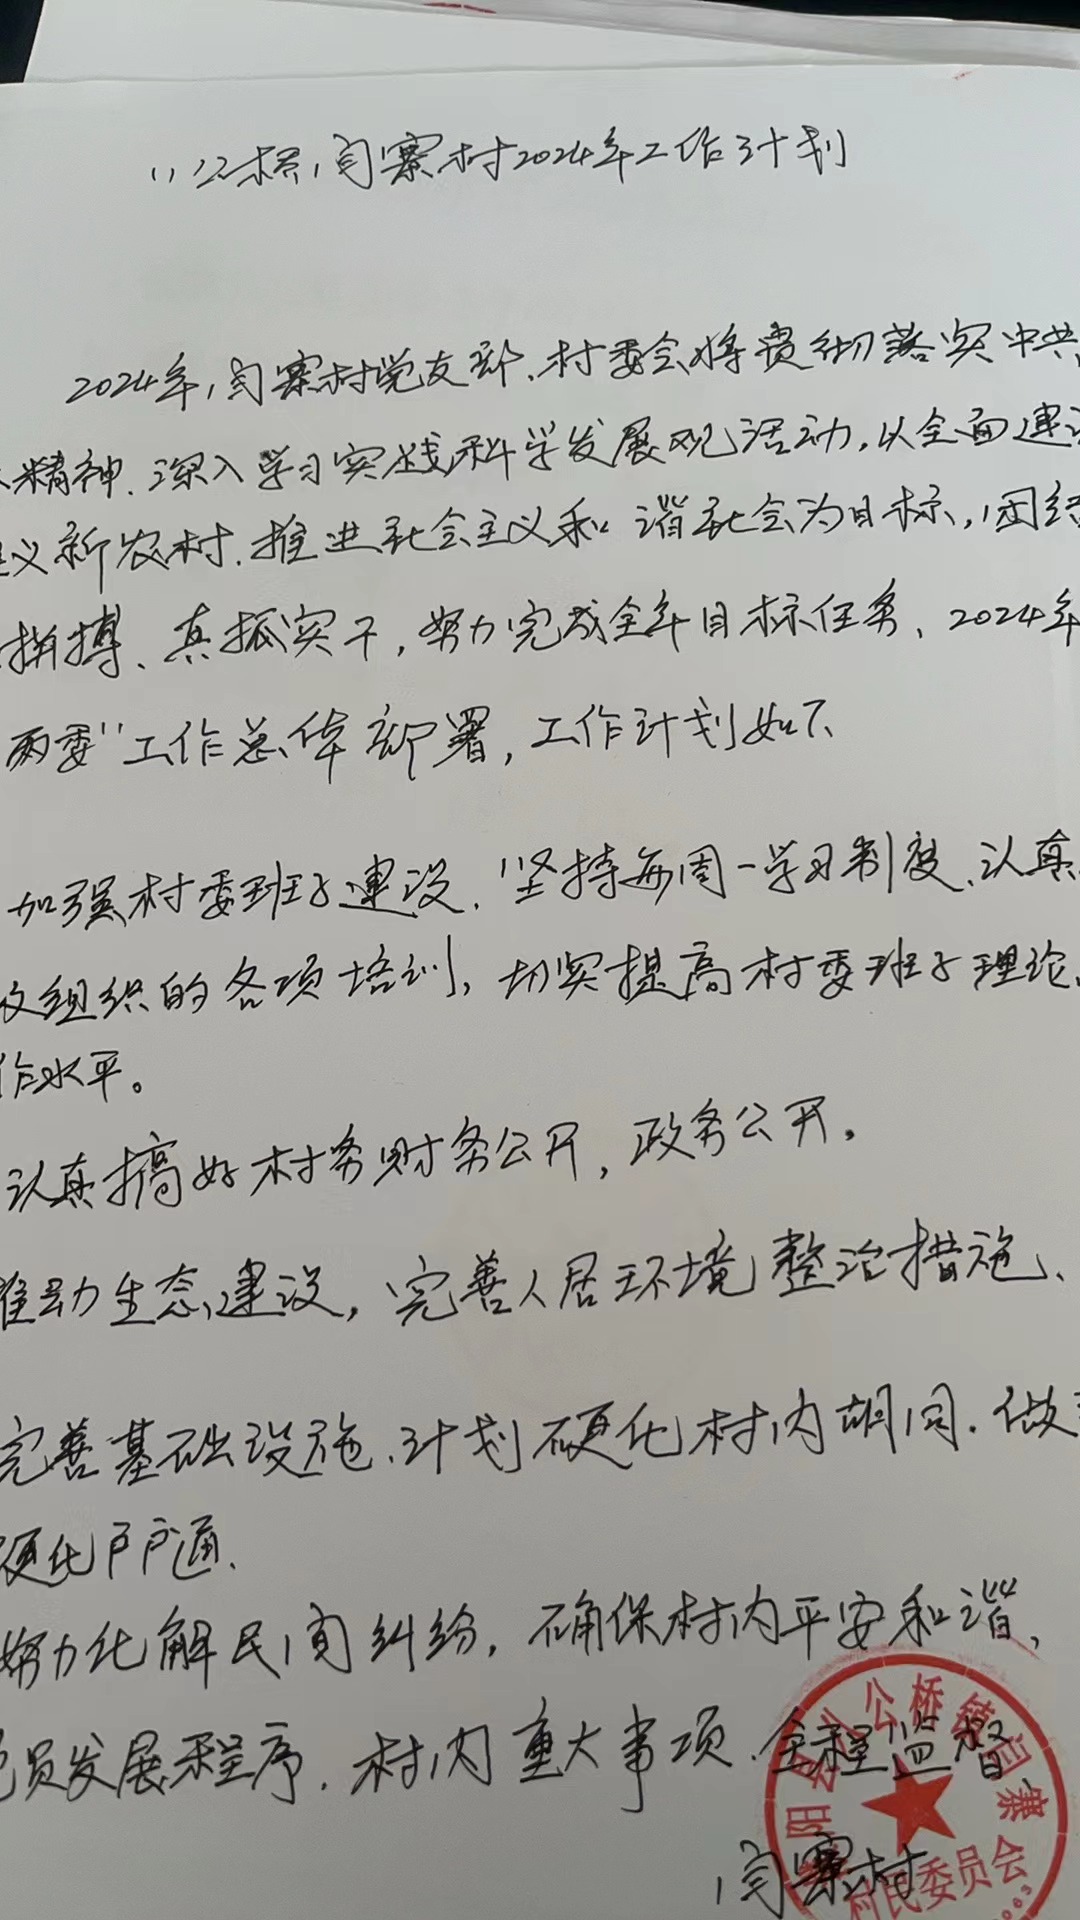 八公桥闫寨村2024年工作计划
2024年,闫寨村党支部、村委会将贯彻落实中共
精神、深入学习实践科学发展观活动,以全面建设
义新农村、推进社会主义和谐社会为目标,团结
拼搏、真抓实干,努力完成全年目标任务、2024年
两委"工作总体部署,工作计划如下、
加强村委班子建设、坚持每周一学习制度、认真
组织的各项培训,切实提高村委班子理论、
作水平。
认真搞好村务财务公开,政务公开。
推动生态建设,完善人居环境整治措施、
完善基础设施、计划硬化村内胡同、做
硬化户户通、
努力化解民间纠纷,确保村内平安和谐、
党员发展程序、村内重大事项、全程监督
闫寨村
阳县八公桥镇闫寨
村民委员会